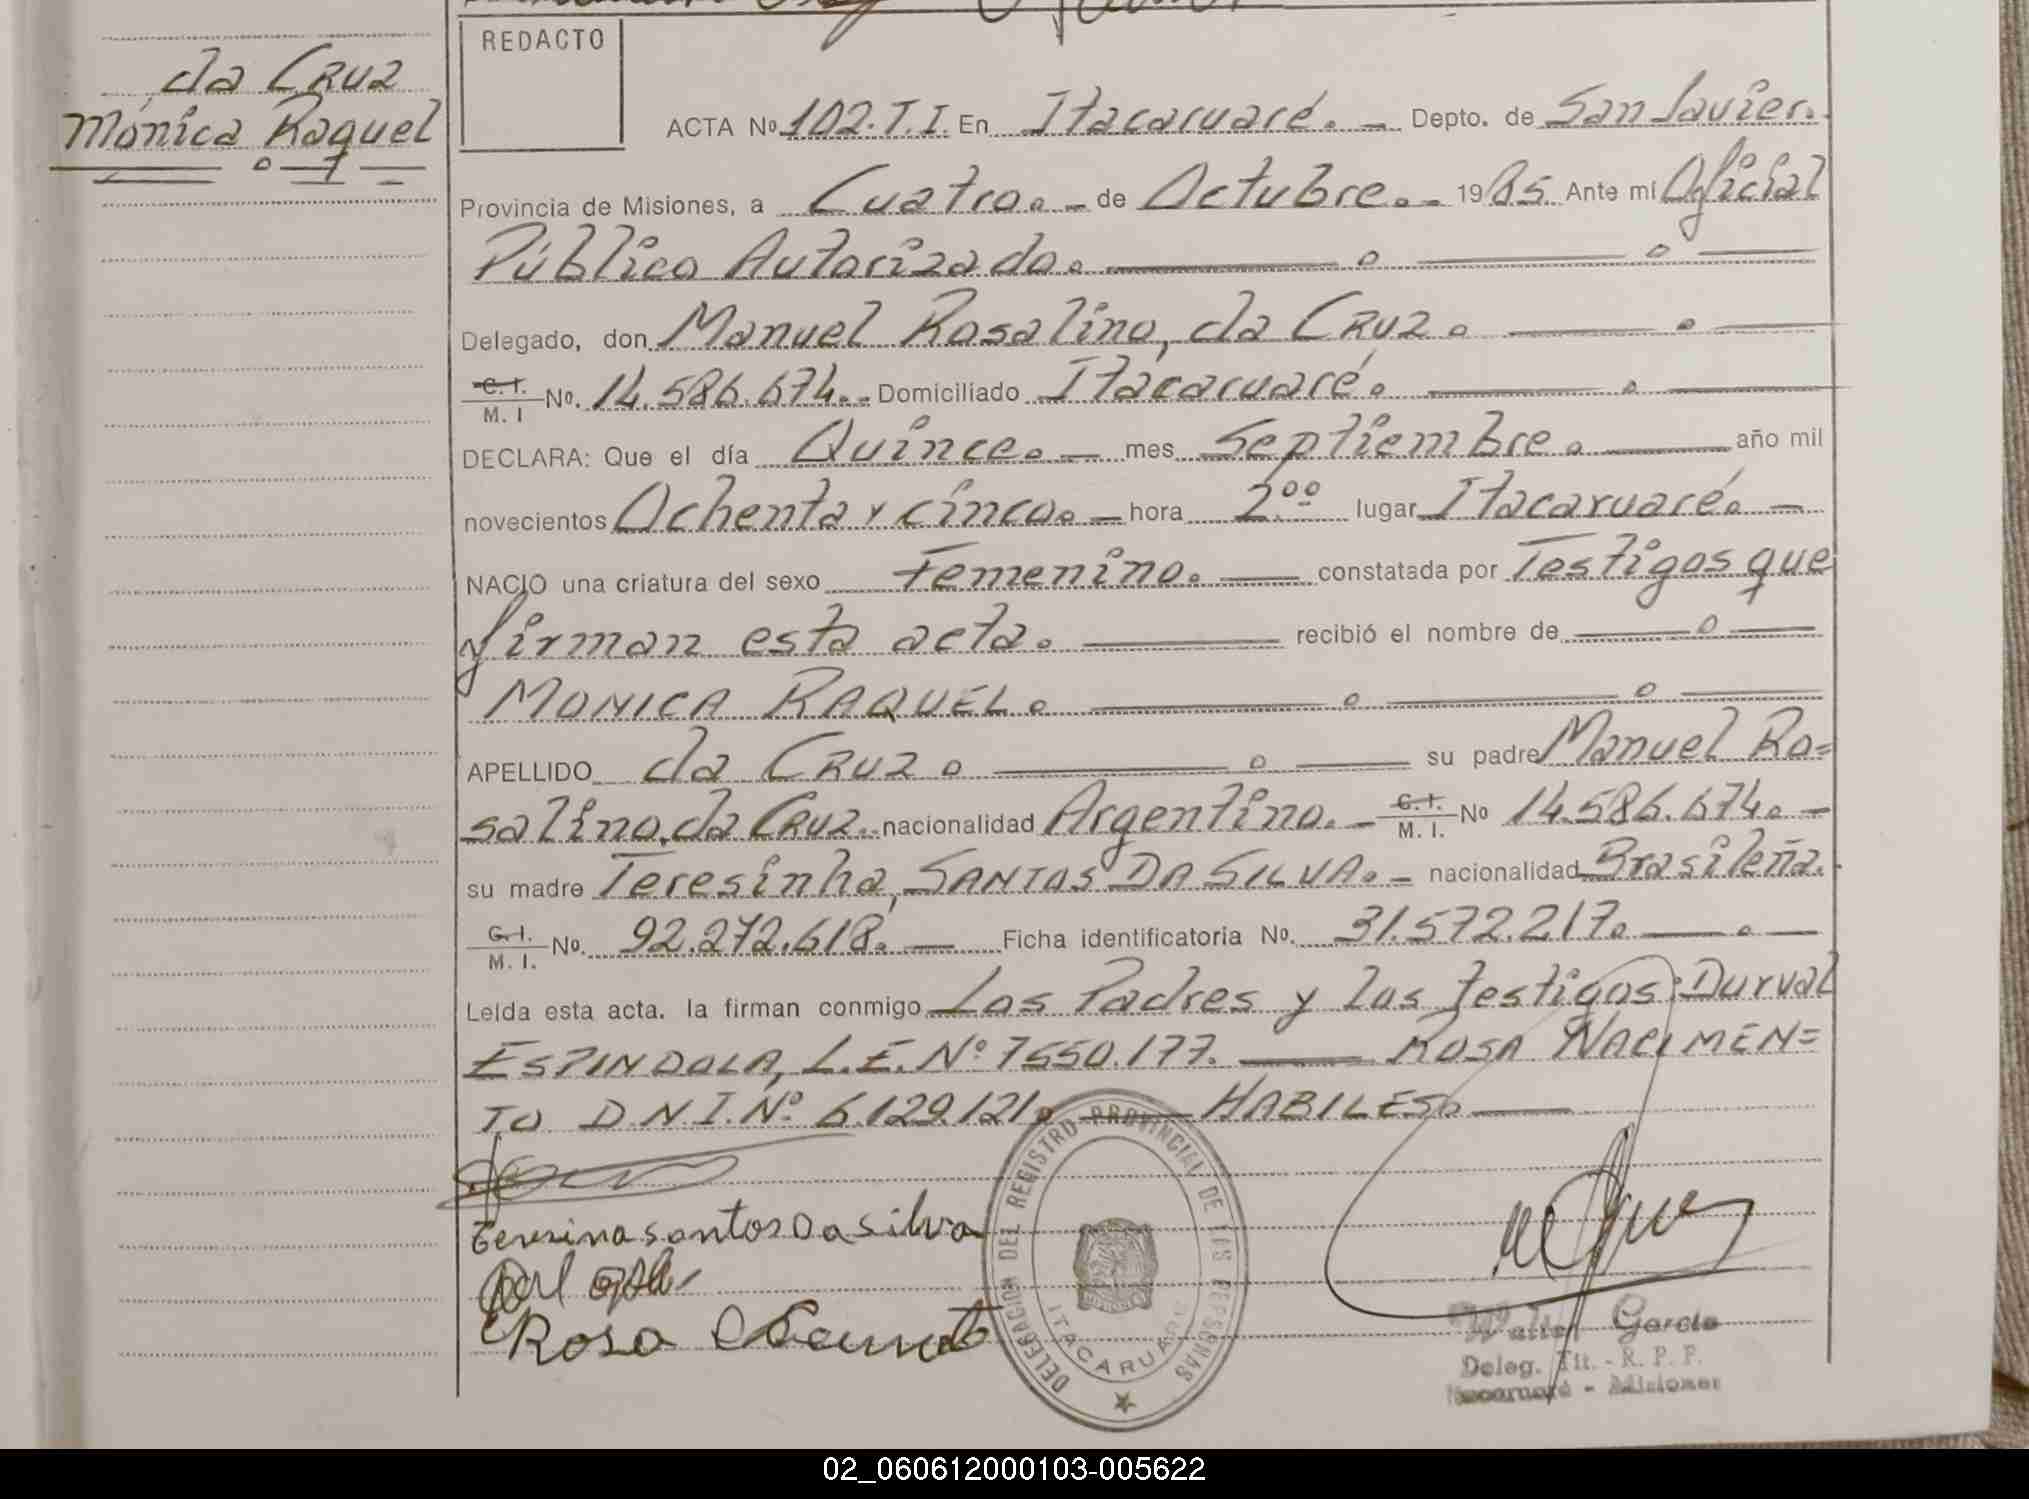 da Cruz
Mónica Raquel
REDACTO
ACTA No 102.T.I. En Itacaruaré. - Depto. de San Javier.
Provincia de Misiones, a Cuatro. - de Octubre. - 1985 Ante mi Oficial
Público Autorizado.
Delegado, don Manuel Rosalino, da Cruz.
C.I. / M.I No. 14.586.674. - Domiciliado Itacaruaré.
DECLARA: Que el día Quince. - mes Septiembre. año mil
novecientos Ochenta y cinco. - hora 2.00 lugar Itacaruaré. -
NACIO una criatura del sexo Femenino. constatada por Testigos que
firman esta acta. recibió el nombre de
MONICA RAQUEL.
APELLIDO da Cruz. su padre Manuel Ro=
salino, da Cruz. nacionalidad Argentino. - C.I. / M.I. No 14.586.674. -
su madre Teresinha, SANTOS DA SILVA. - nacionalidad Brasileña.
C.I. / M.I. No. 92.272.618. Ficha identificatoria No. 31.572.217.
Leida esta acta. la firman conmigo Los Padres y los testigos: Durval
ESPINDOLA, L.E. Nº 7550.177. ROSA NACIMEN=
TO D.N.I. Nº 6.129.121. HABILES.
Teresina santos Da silva
Rosa
DELEGACION DEL REGISTRO PROVINCIAL DE LAS PERSONAS
ITACARUARE
MISIONES
Walter Garcia
Deleg. Tit. - R. P. P.
Itacaruaré - Misiones
02_060612000103-005622